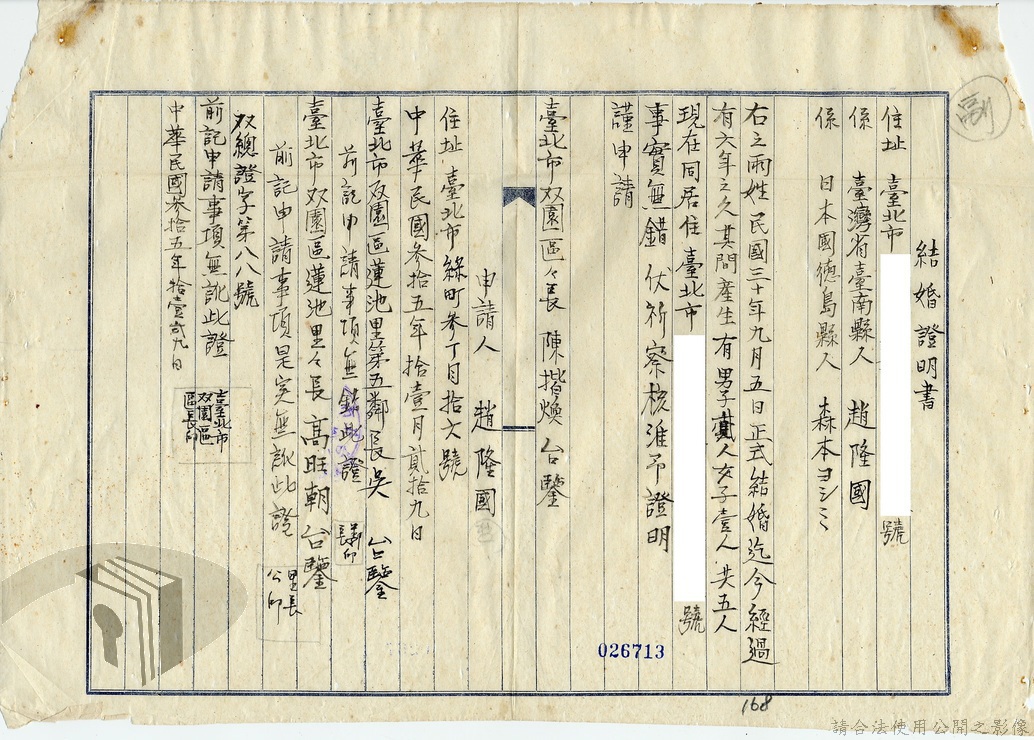 副
結婚證明書
住址 臺北市 號
係 臺灣省臺南縣人 趙隆國
係 日本國德島縣人 森本ヨシミ
右之兩姓民國三十年九月五日正式結婚迄今經過
有六年之久其間產生有男子貳人女子壹人共五人
現在同居住臺北市 號
事實無錯 伏祈察核准予證明
謹申請
臺北市双園區々長 陳揩煥 台鑒
申請人 趙隆國
住址 臺北市綠町參丁目拾六號
中華民國參拾五年拾壹月貳拾九日
臺北市双園區蓮池里第五鄰長吳 台鑒
前記申請事項無錯此證
鄰長印
臺北市双園區蓮池里々長 高旺朝 台鑒
前記申請事項是実無訛此證
里長公印
双總證字第八八號
前記申請事項無訛此證
臺北市双園區區長印
中華民國參拾五年拾壹 貳九日
026713
168
請合法使用公開之影像